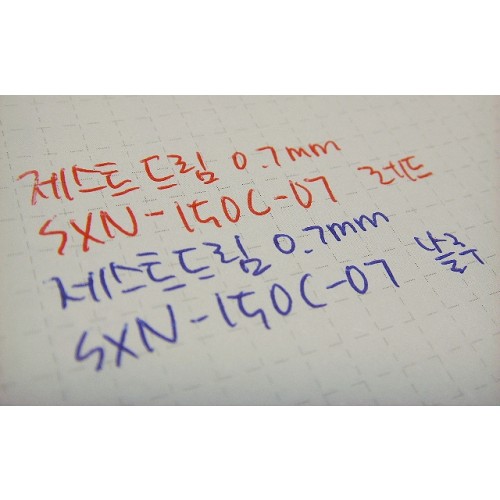 제스트드림 0.7mm
SXN-150C-07 레드
제스트드림 0.7mm
SXN-150C-07 블루